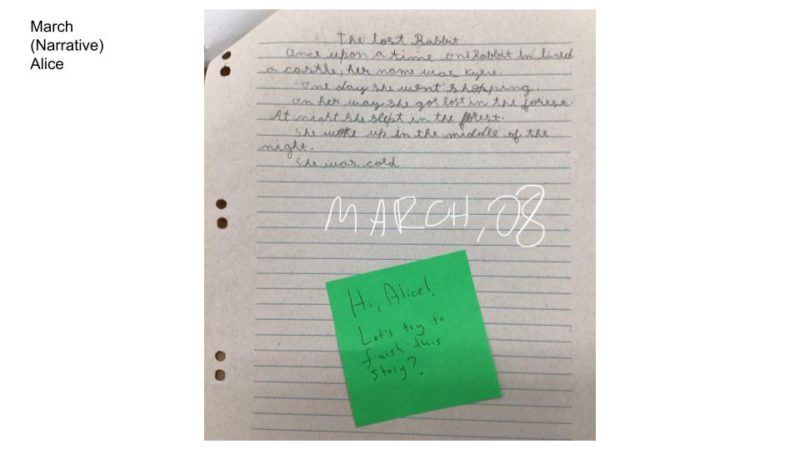 March
(Narrative)
Alice
The lost Rabbit
Once upon a time one Rabbit in lived
a castle, her name was Kylie.
One day she went shopping.
on her way she got lost in the forest
At night she slept in the forest.
She woke up in the middle of the
night.
She was cold
MARCH, 08
Hi, Alice!
Let's try to
finish this
story?